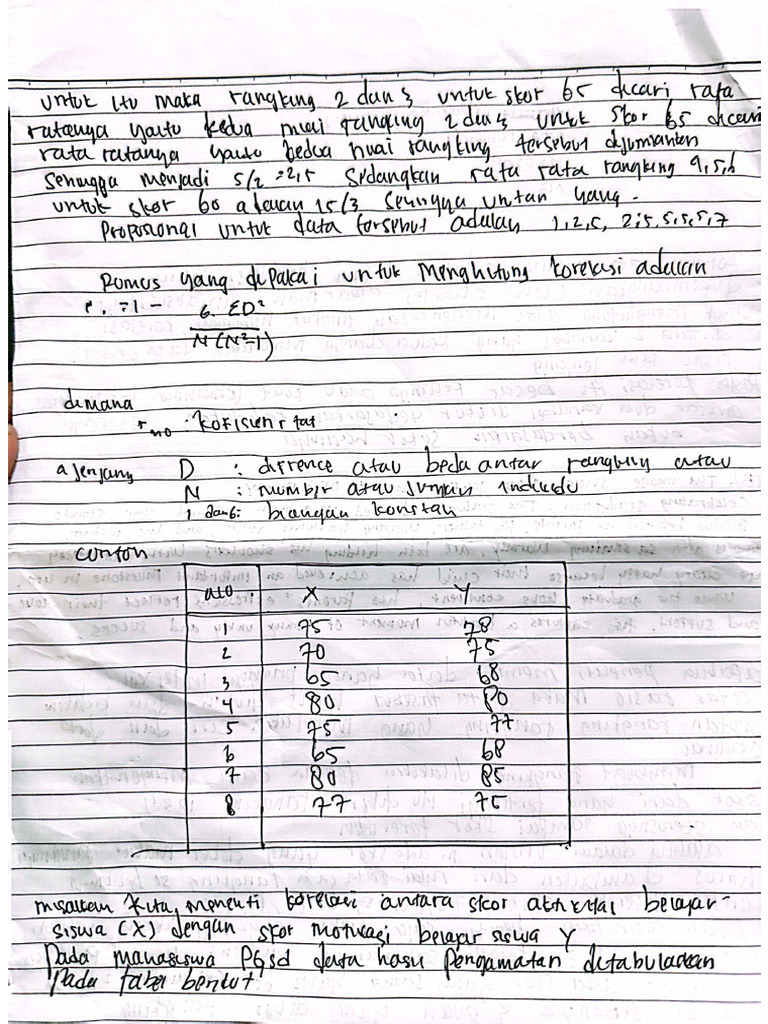 untuk itu maka rangking 2 dan 3 untuk skor 65 dicari rata
ratanya yaitu kedua nilai rangking 2 dan 3 untuk skor 65 dicari
rata ratanya yaitu kedua nilai rangking tersebut dijumlahkan
sehingga menjadi 5/2 = 2,5 sedangkan rata rata rangking 4,5,6
untuk skor 60 adalah 15/3 sehingga urutan yang
Proporsional untuk data tersebut adalah 1, 2,5, 2,5, 5, 5, 5, 7
Rumus yang dipakai untuk menghitung korelasi adalah
= 1 - 6. ΣD²
N (N²-1)
dimana
rho : kofisien r tat
ajenjang D : difrence atau beda antar rangking atau
N : number atau jumlah individu
1 dan 6: bilangan konstan
contoh
X Y
1 75 78
2 70 75
3 65 68
4 80 80
5 75 77
6 65 68
7 80 85
8 77 75
misalkan kita meneliti korelasi antara skor aktifitas belajar
siswa (X) dengan skor motivasi belajar siswa Y
Pada mahasiswa PGSD data hasil pengamatan ditabulasikan
Pada tabel berikut